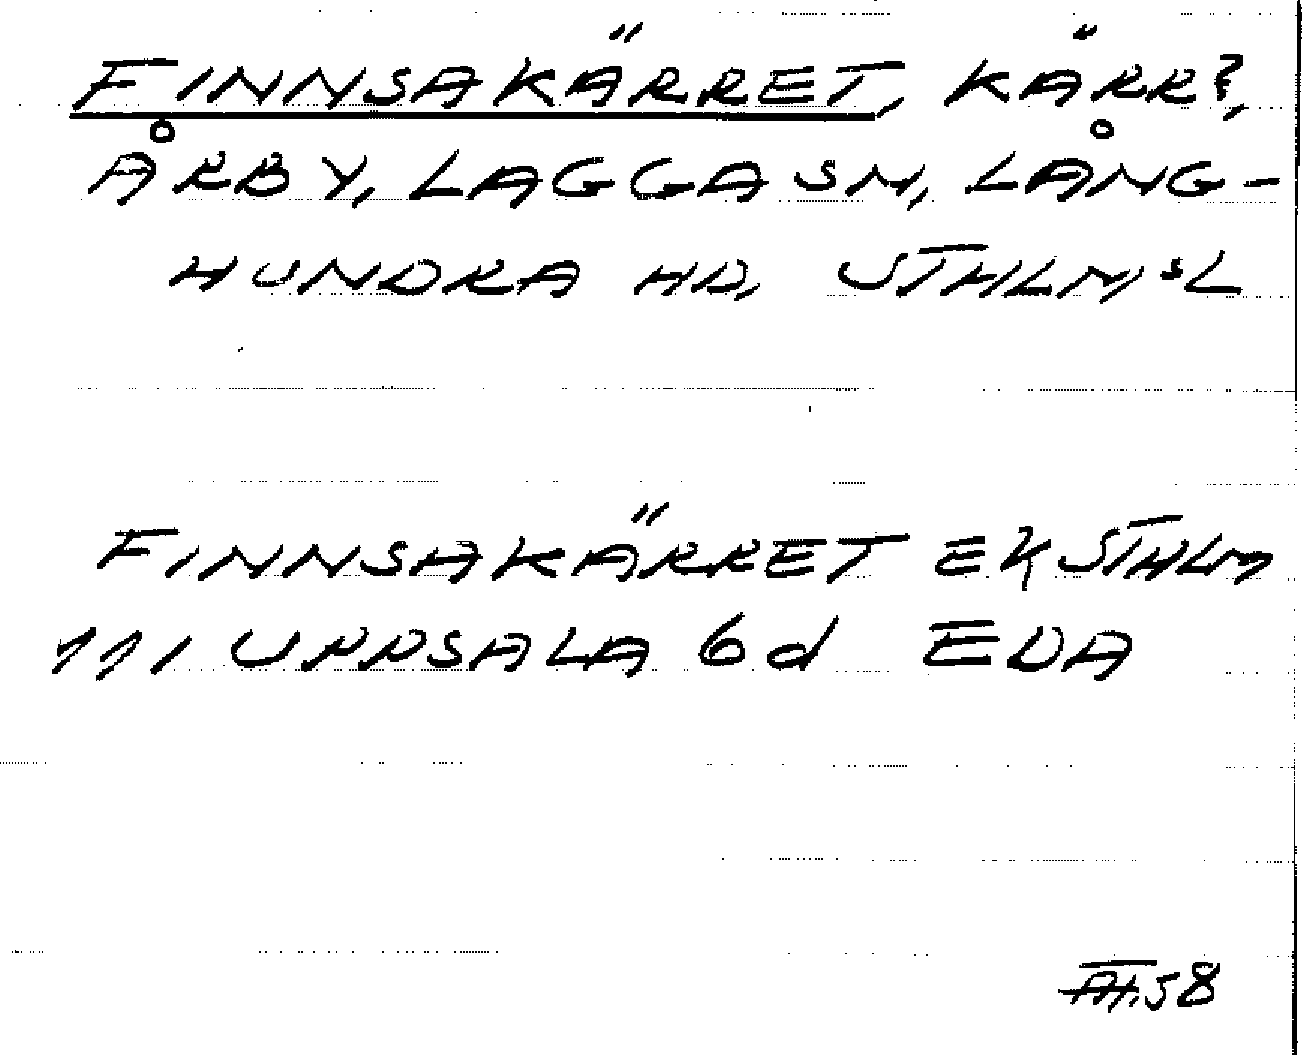 FINNSAKÄRRET, KÄRR?,
ÅRBY, LAGGA SN, LÅNG-
HUNDRA HD, STHLMS L
FINNSAKÄRRET EK STHLM
111 UPPSALA 6d EDA
58